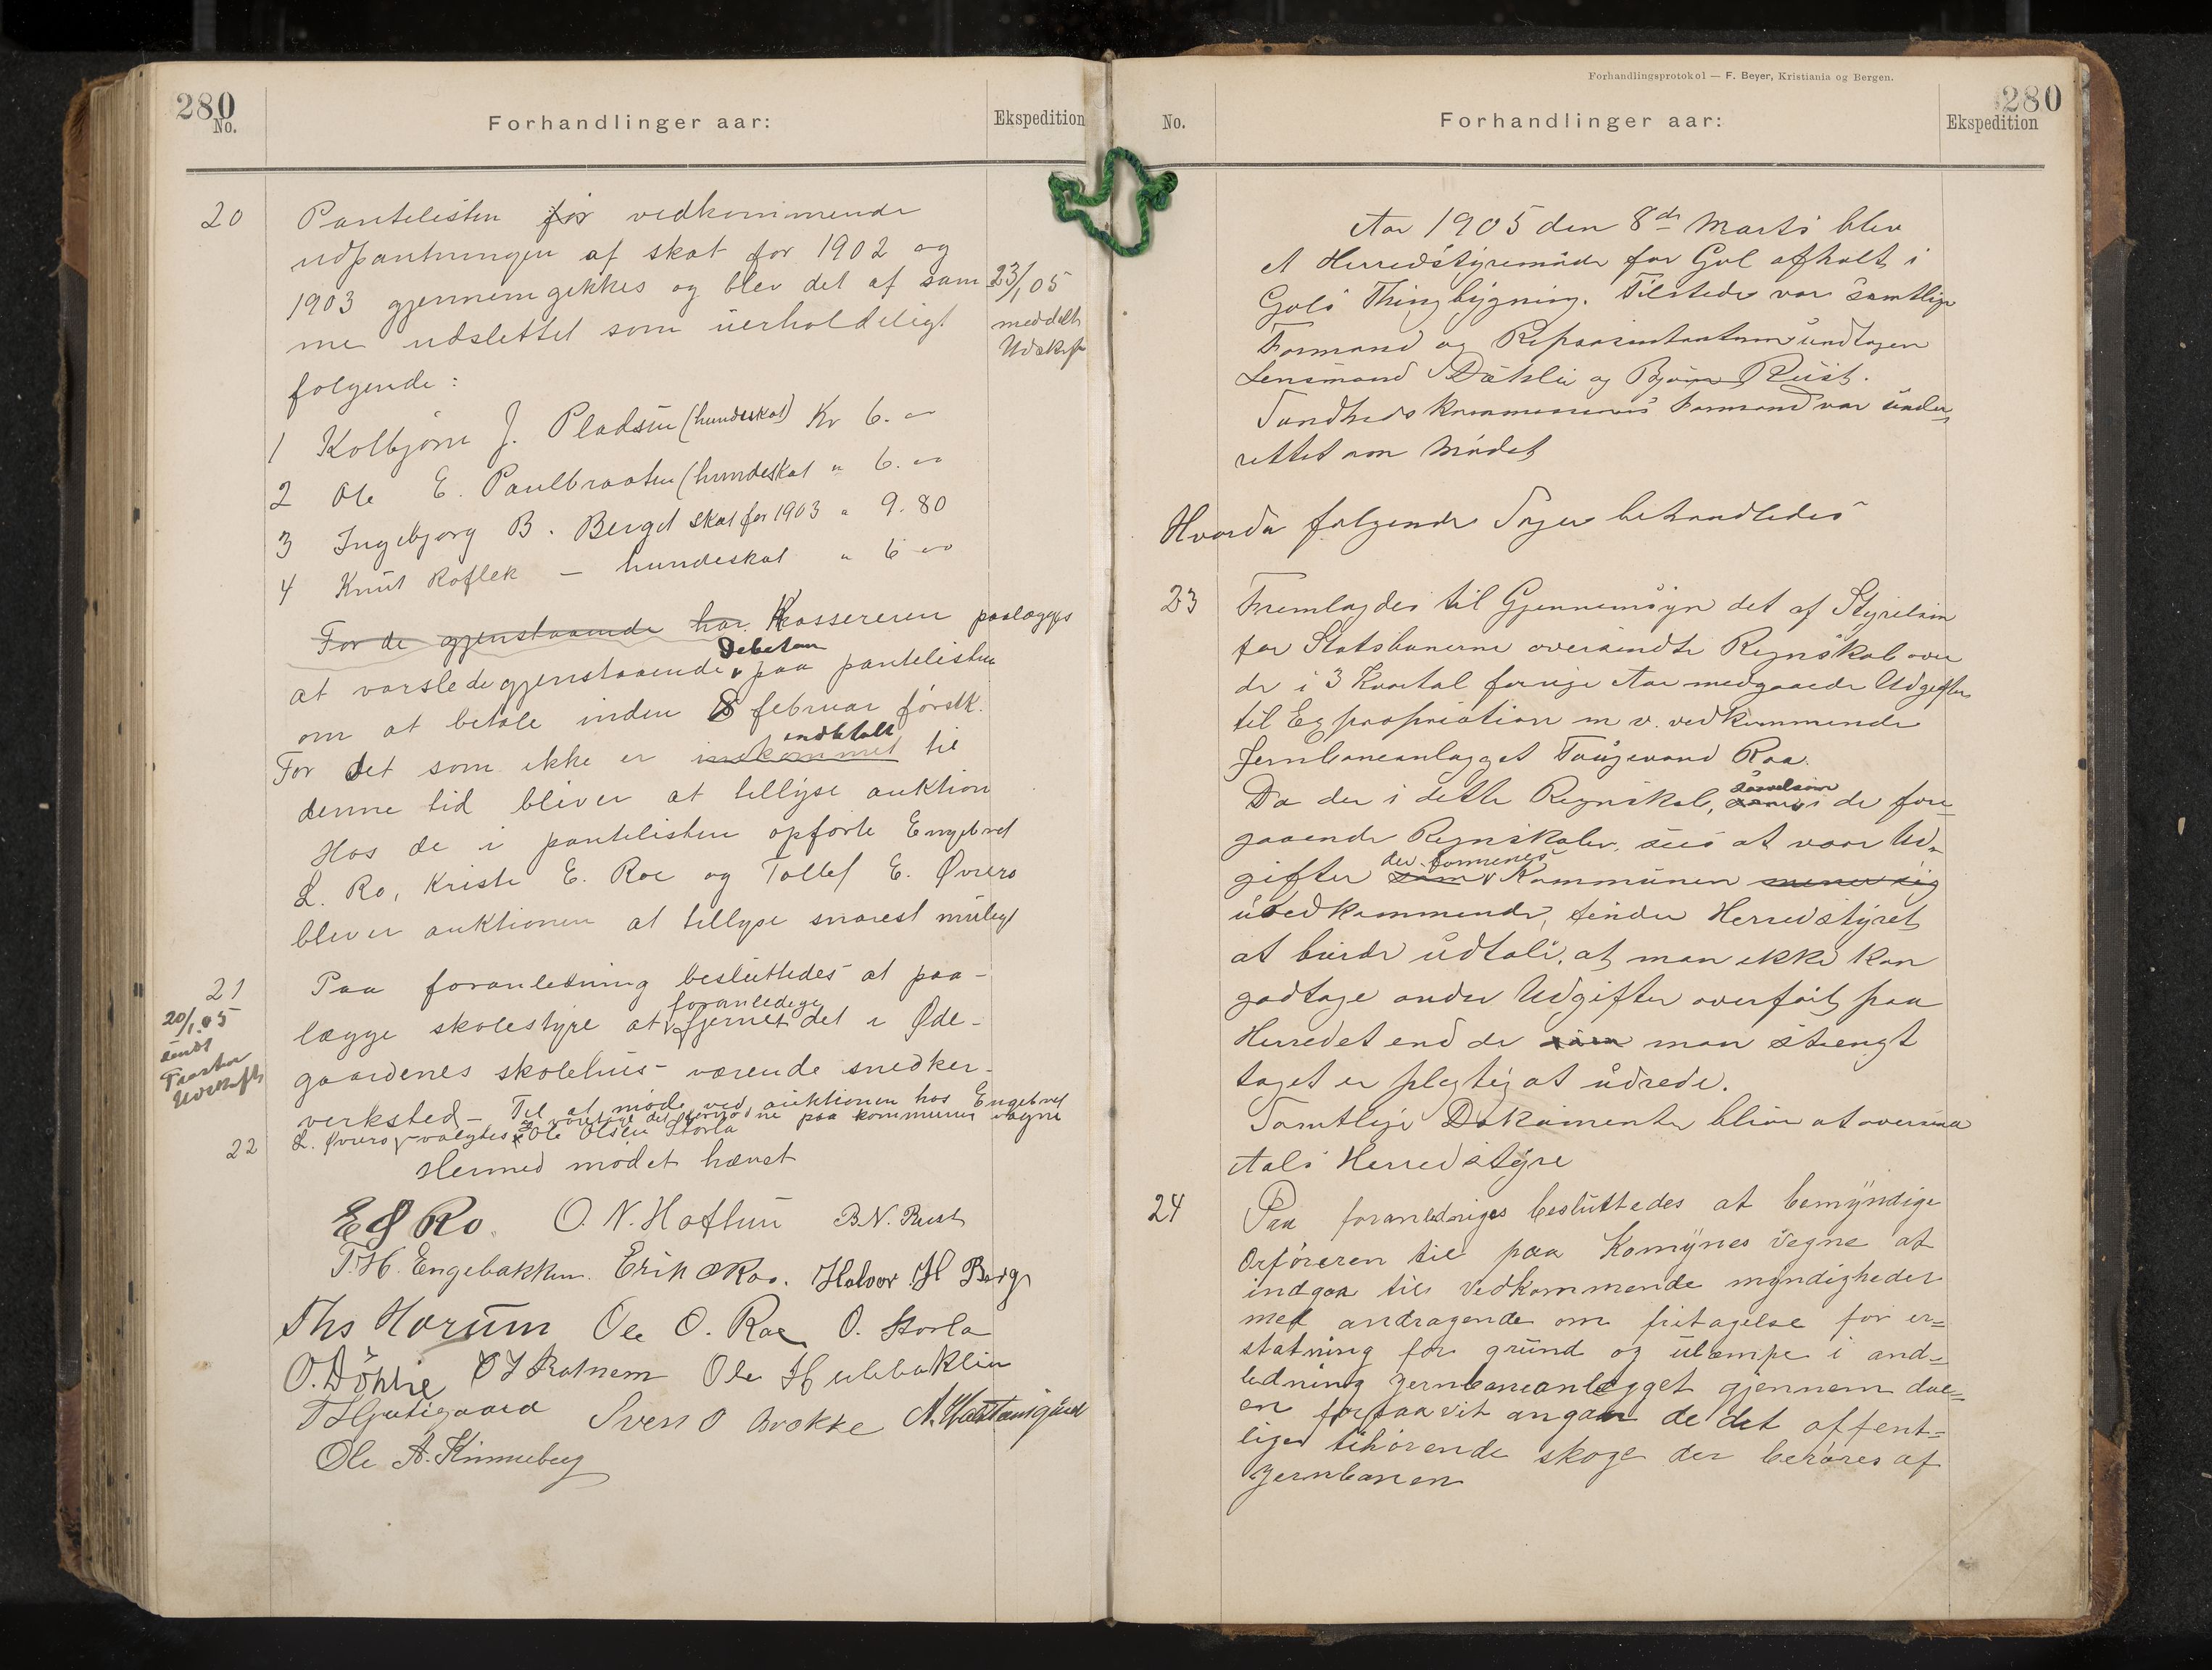 280
No.
Forhandlinger aar:
Ekspedition
20
Pantelisten for vedkommende
udpantningen af skat for 1902 og
1903 gjennemgikkes og blev det af sam
me udslettet som uerholdeligt
folgende:
23/1 05
meddelt
Udskrift
1 Kolbjørn J. Pladsen (hundeskat) Kr 6.00
2 Ole E. Paulbraaten (hundeskat " 6.00
3 Ingebjorg B. Berget skat for 1903 " 9.80
4 Knut Roflek — hundeskat " 6 00
For de gjenstaaende har Kassereren paalægges
at varslede gjenstaaende Debetam paa pantelisten
om at betale inden 8 februar førstk.
For det som ikke er indkommet indbetalt til
denne tid bliver at tillyse auktion
Hos de i pantelisten opførte Engebret
L. Ro, Kristi E. Roe og Tollef E. Øvrero
bliver auktionen at tillyse snarest muligt
21
20/1.05
sendt
Udskrift
Paa foranledning besluttedes at paa-
lægge skolestyre at foranledige fjernet det i Øde-
gaardenes skolehus værende snedker-
verksted – Til at møde ved auktionen hos Engebret
L. Øvrero valgtes Ole Olsen Storla
varetage det fornødne paa kommunens vegne
22
Hermed mødet hævet
E L Ro. O. N. Hoftun B. N. Rust
T. H. Engebakken. Erik O Roo. Halvor H Berg
Ths Horum Ole O. Roe O. Storla
O. Døkke O J Bratnem Ole H ulebaklin
Sven O Brokke
Ole A. Kinneberg
Forhandlingsprotokol — F. Beyer, Kristiania og Bergen.
280
No.
Forhandlinger aar:
Ekspedition
Aar 1905 den 8de Marts blev
et Herredstyremøde for Gol afholt i
Gols Thingbygning. Tilstede var samtlige
Formænd og Repræsentanter undtagen
Lensmand Døkki og Bjørn Rust.
Sundhedskommisionens Formand var under,
rettet om Mødet
Hvorda folgende Sager behandledes
23
Fremlagdes til Gjennemsyn det af Styrelsen
for Statsbanerne oversendte Regnskab over
de i 3 Kvartal forrige Aar medgaaede Udgifter
til Expropriation m v. vedkommende
Jernbaneanlægget Taugevand Roa.
Da der i dette Regnskab, saavelsom i de fore-
gaaende Regnskaber, sees at være Ud-
gifter som der formenes Kommunen mener sig
uvedkommende, finder Herredstyret
at burde udtale, at man ikke kan
godtage andre Udgifter overført paa
Herredet end de som man strengt
taget er pligtig at udrede.
Samtlige Dokumenter bliver at oversende
Aals Herredstyre
24
Paa foranledniges besluttedes at bemyndige
Orføreren til paa Komynes Vegne at
indgaa til Vedkommende myndigheder
med andragende om fritagelse for er=
statning for grund og ulempe i and=
ledning jernbaneanlægget gjennem dal=
en forsaavit angaar de det offent=
lige tilhørende skoge der berøres af
Jernbanen